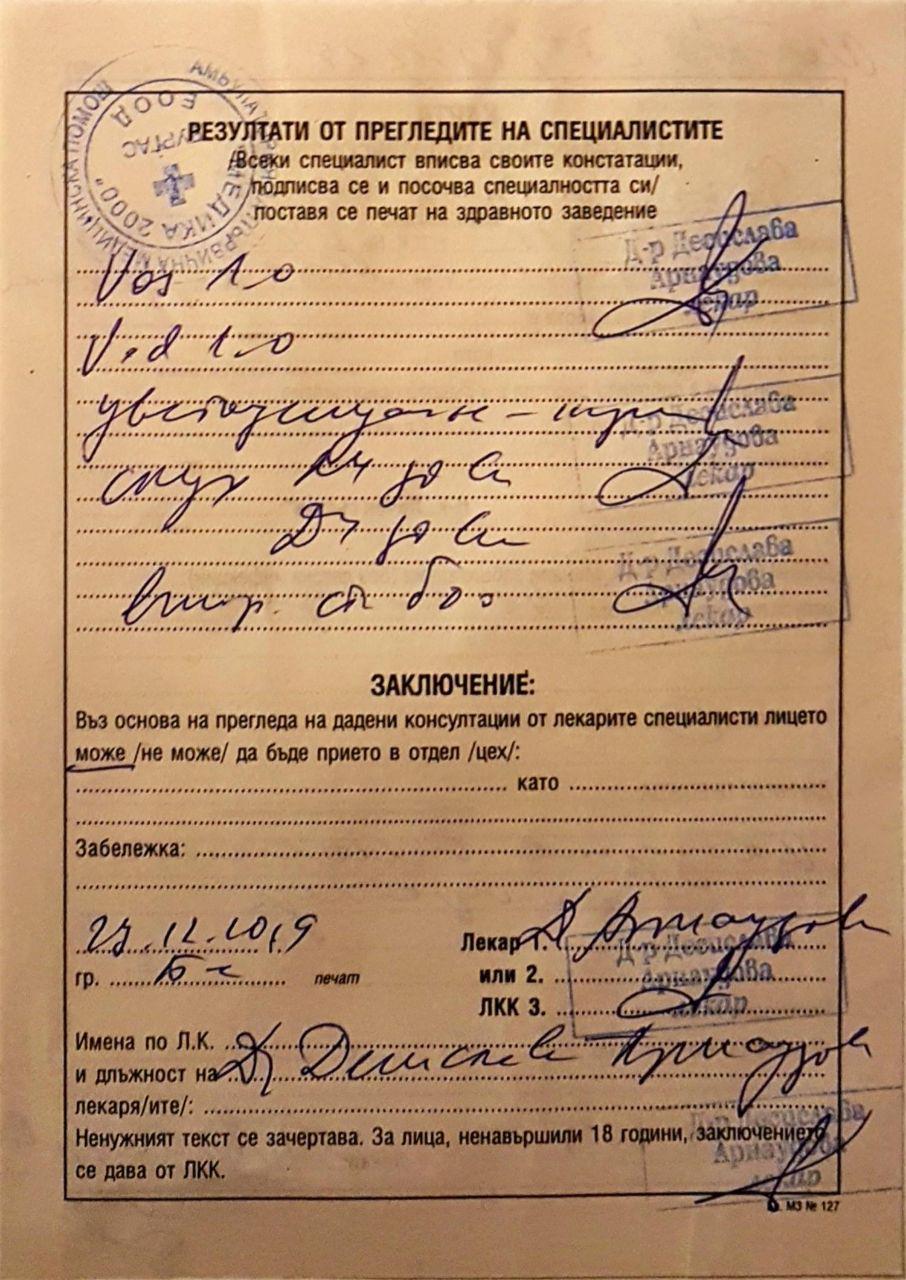 АМБУЛАТОРИЯ ЗА ПЪРВИЧНА МЕДИЦИНСКА ПОМОЩ
"МЕДИКА 2000"
ЕООД
БУРГАС
РЕЗУЛТАТИ ОТ ПРЕГЛЕДИТЕ НА СПЕЦИАЛИСТИТЕ
/Всеки специалист вписва своите констатации,
подписва се и посочва специалността си/
поставя се печат на здравното заведение
Д-р Десислава
Арнаудова
лекар
Vos 1.0
Vod 1.0
Д-р Десислава
Арнаудова
лекар
слух
Д-р Десислава
Арнаудова
лекар
ЗАКЛЮЧЕНИЕ:
Въз основа на прегледа на дадени консултации от лекарите специалисти лицето
може /не може/ да бъде прието в отдел /цех/:
като
Забележка:
Лекар 1. Д-р Арнаудова
гр. Бс печат или 2.
ЛКК 3.
Д-р Десислава
Арнаудова
лекар
Имена по Л.К.
и длъжност на Д-р Десислава Арнаудова
лекаря/ите/:
Ненужният текст се зачертава. За лица, ненавършили 18 години, заключението
се дава от ЛКК.
Д-р Десислава
Арнаудова
лекар
МЗ № 127